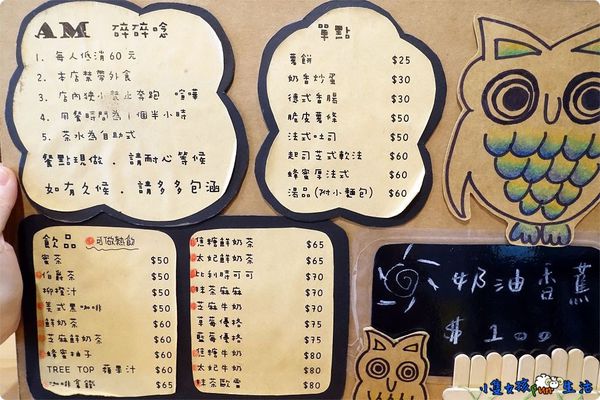 AM 碎碎唸
1. 每人低消60元
2. 本店禁帶外食
3. 店內狹小禁止奔跑、喧嘩
4. 用餐時間為1個半小時
5. 茶水為自助式
餐點現做，請耐心等候
如有久候，請多多包涵
單點
薯餅 $25
奶香炒蛋 $30
德式香腸 $30
脆皮薯條 $50
法式吐司 $50
起司芝式軟法 $60
蜂蜜厚法式 $60
湯品(附小麵包) $60
飲品 可做熱飲
蜜茶 $50
伯爵茶 $50
柳橙汁 $50
美式黑咖啡 $50
鮮奶茶 $60
芝麻鮮奶茶 $60
蜂蜜柚子 $60
TREE TOP 蘋果汁 $60
咖啡拿鐵 $65
焦糖鮮奶茶 $65
太妃鮮奶茶 $65
比利時可可 $70
抹茶麻麻 $70
芝麻牛奶 $70
草莓優格 $75
藍莓優格 $75
焦糖牛奶 $80
太妃牛奶 $80
抹茶歐蕾 $80
奶油香蕉
$100
小隻女孩fun生活